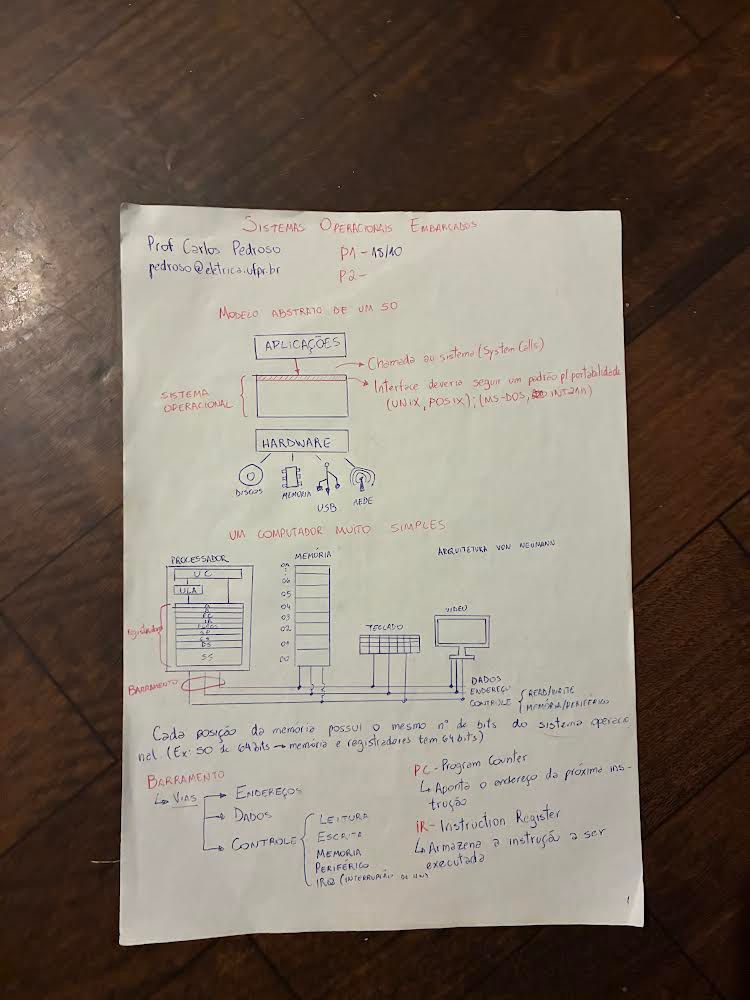 SISTEMAS OPERACIONAIS EMBARCADOS
Prof Carlos Pedroso
P1 - 18/10
pedroso@eletrica.ufpr.br
P2 -
MODELO ABSTRATO DE UM SO
APLICAÇÕES
Chamada ao sistema (System Calls)
SISTEMA OPERACIONAL
Interface deveria seguir um padrão p/ portabilidade
(UNIX, POSIX); (MS-DOS, INT21H)
HARDWARE
DISCOS
MEMÓRIA
USB
REDE
UM COMPUTADOR MUITO SIMPLES
ARQUITETURA VON NEUMANN
PROCESSADOR
MEMÓRIA
UC
ULA
06
05
04
03
02
01
00
PC
IR
DS
SS
Registradores
TECLADO
VIDEO
BARRAMENTO
DADOS
ENDEREÇO
CONTROLE
READ/WRITE
MEMÓRIA/PERIFÉRICO
Cada posição da memória possui o mesmo nº de bits do sistema operacio
nal (Ex: SO de 64 bits → memória e registradores tem 64 bits)
BARRAMENTO
↳ VIAS
ENDEREÇOS
DADOS
CONTROLE
LEITURA
ESCRITA
MEMORIA
PERIFÉRICO
IRQ (INTERRUPÇÃO DE HW)
PC - Program Counter
↳ Aponta o endereço da próxima ins-
trução
IR - Instruction Register
↳ Armazena a instrução a ser
executada
1